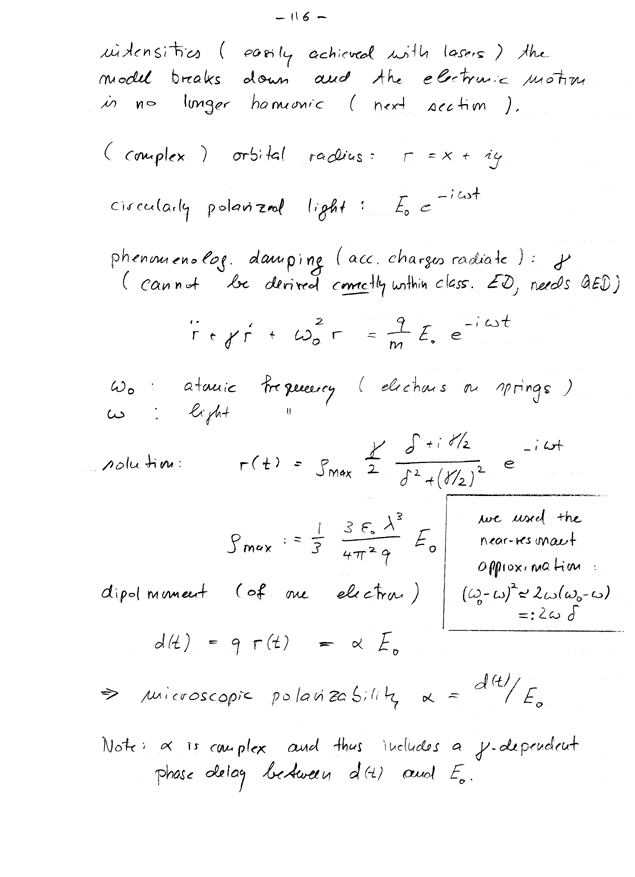 - 116 -
intensities ( easily achieved with lasers ) the
model breaks down and the electronic motion
is no longer harmonic ( next section ).
( complex ) orbital radius : r = x + iy
circularly polarized light : E₀ e^{-iωt}
phenomenolog. damping ( acc. charges radiate ) : γ
( cannot be derived correctly within class. ED, needs QED )
r̈ + γ ṙ + ω₀² r = q/m E₀ e^{-iωt}
ω₀ : atomic frequency ( electrons on springs )
ω : light "
solution : r(t) = ρ_max γ/2 (δ + i γ/2)/(δ² + (γ/2)²) e^{-iωt}
ρ_max := 1/3 (3 ε₀ λ³)/(4π² q) E₀
we used the
near-resonant
approximation :
(ω₀-ω)² ≈ 2ω(ω₀-ω)
=: 2ω δ
dipol moment ( of one electron )
d(t) = q r(t) = α E₀
⇒ microscopic polarizability α = d(t)/E₀
Note : α is complex and thus includes a γ-dependent
phase delay between d(t) and E₀.